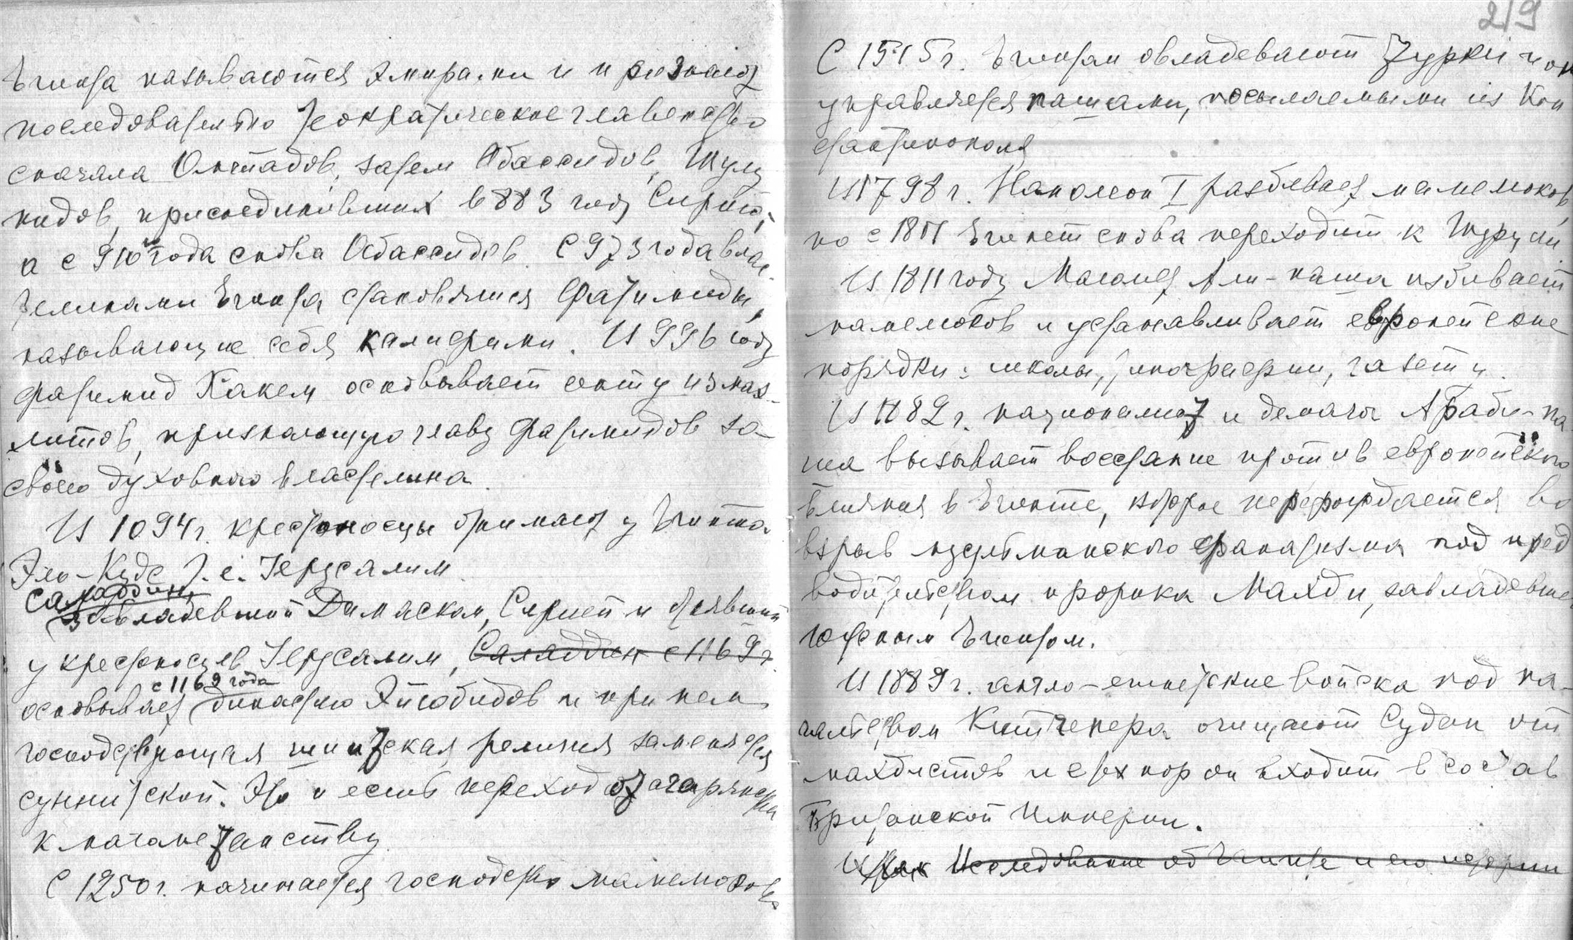 Египта называются Эмирами и признают
последовательно теократическое главенство
сначала Омиадов, затем Абассидов, Тулу
нидов, присоединивших в 883 году Сирию,
а с 910го года снова Абассидов. С 973 года влас-
телинами Египта становятся Фатимиды,
называющие себя калифами. В 996 году
фатимид Хакем основывает секту измаэ-
литов, признающую главу Фатимидов за
своего духовного властелина.
В 1094 г. крестоносцы отнимают у Египта
Эль-Кудс т.е. Иерусалим.
Саладдин,
завладевший Дамаском, Сирией и отнявший
у крестоносцев Иерусалим, Саладдин с 1169 г.
с 1169 года
основывает династию Эйюбидов и при нем
господствующая шиитская религия заменяется
суннитской. Это и есть переход от агарянства
к магометанству.
С 1250 г. начинается господство мамелюков
219
С 1515 г. Египтом овладевают Турки и он
управляется пашами, посылаемыми из Кон
стантинополя
В 1798 г. Наполеон I разбивает мамелюков,
но с 1801 Египет снова переходит к Турции
В 1811 году Магомет Али-паша избивает
мамелюков и устанавливает европейские
порядки: школы, типографии, газету.
В 1882 г. националист и демагог Араби-па-
ша вызывает восстание против европейского
влияния в Египте, которое перерождается во
взрыв мусульманского фанатизма под пред
водительством пророка Махди, завладевшего
южным Египтом.
В 1889 г. англо-египетские войска под на-
чальством Китченера очищают Судан от
махдистов и с тех пор он входит в состав
Британской Империи.
Исследование об Египте и его истории